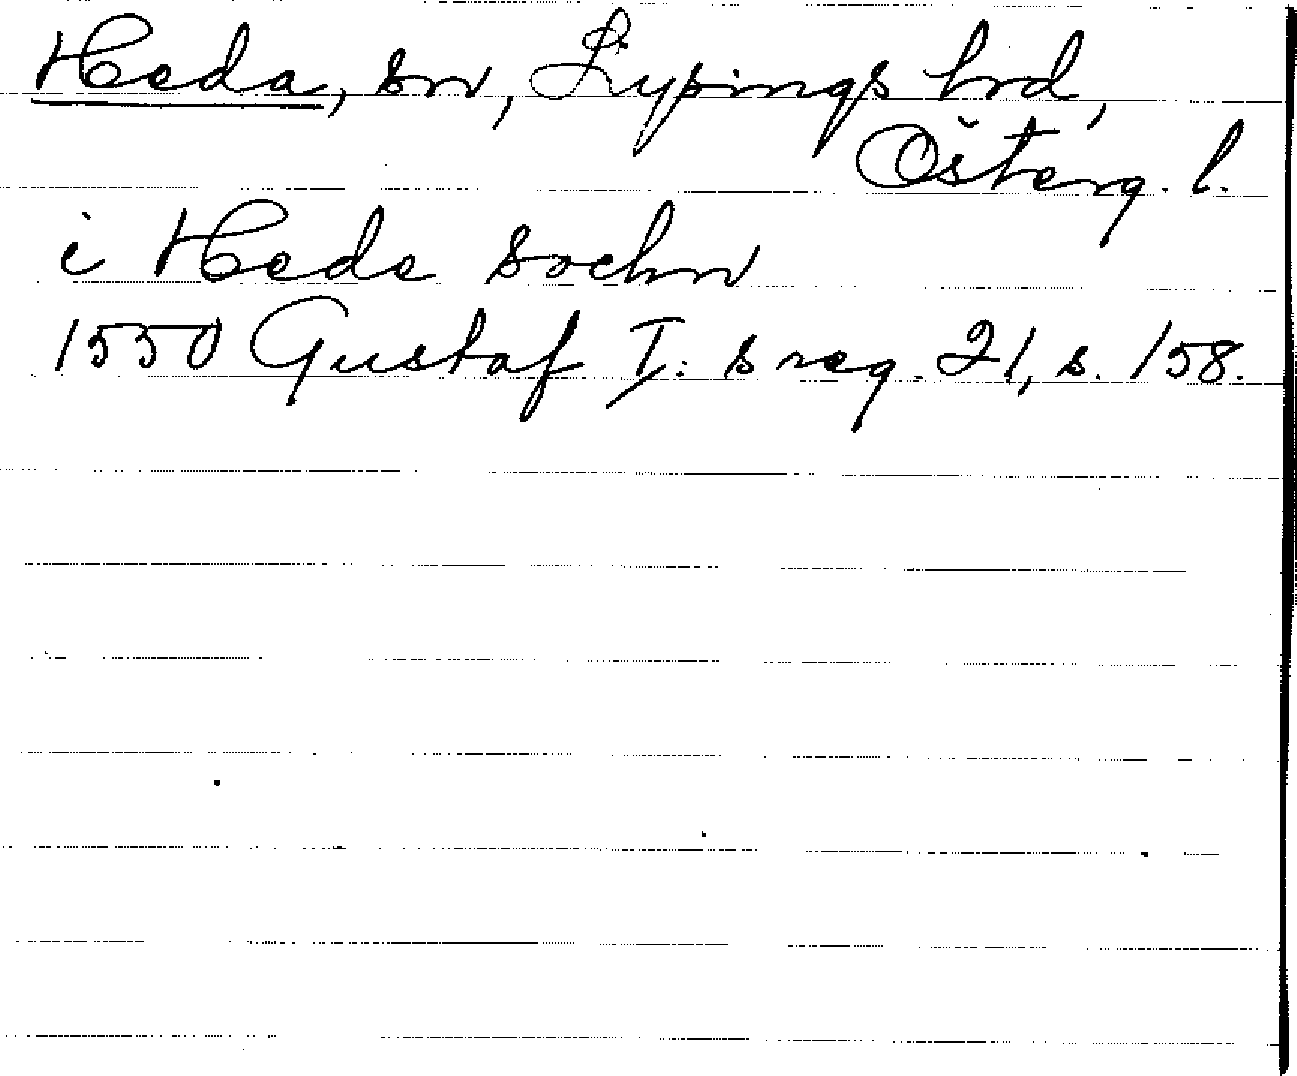 Heda, sn, Lysings hrd,
Österg. l.
i Hede sochn
1550 Gustaf I:s reg. 21, s. 158.